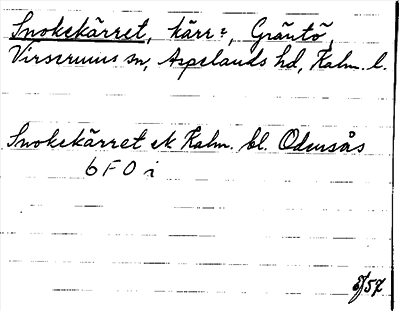 Snokekärret, kärr?, Gräntö,
Virserums sn, Aspelands hd, Kalm. l.
Snokekärret ek Kalm. bl. Odensås
6 F O i
5/57